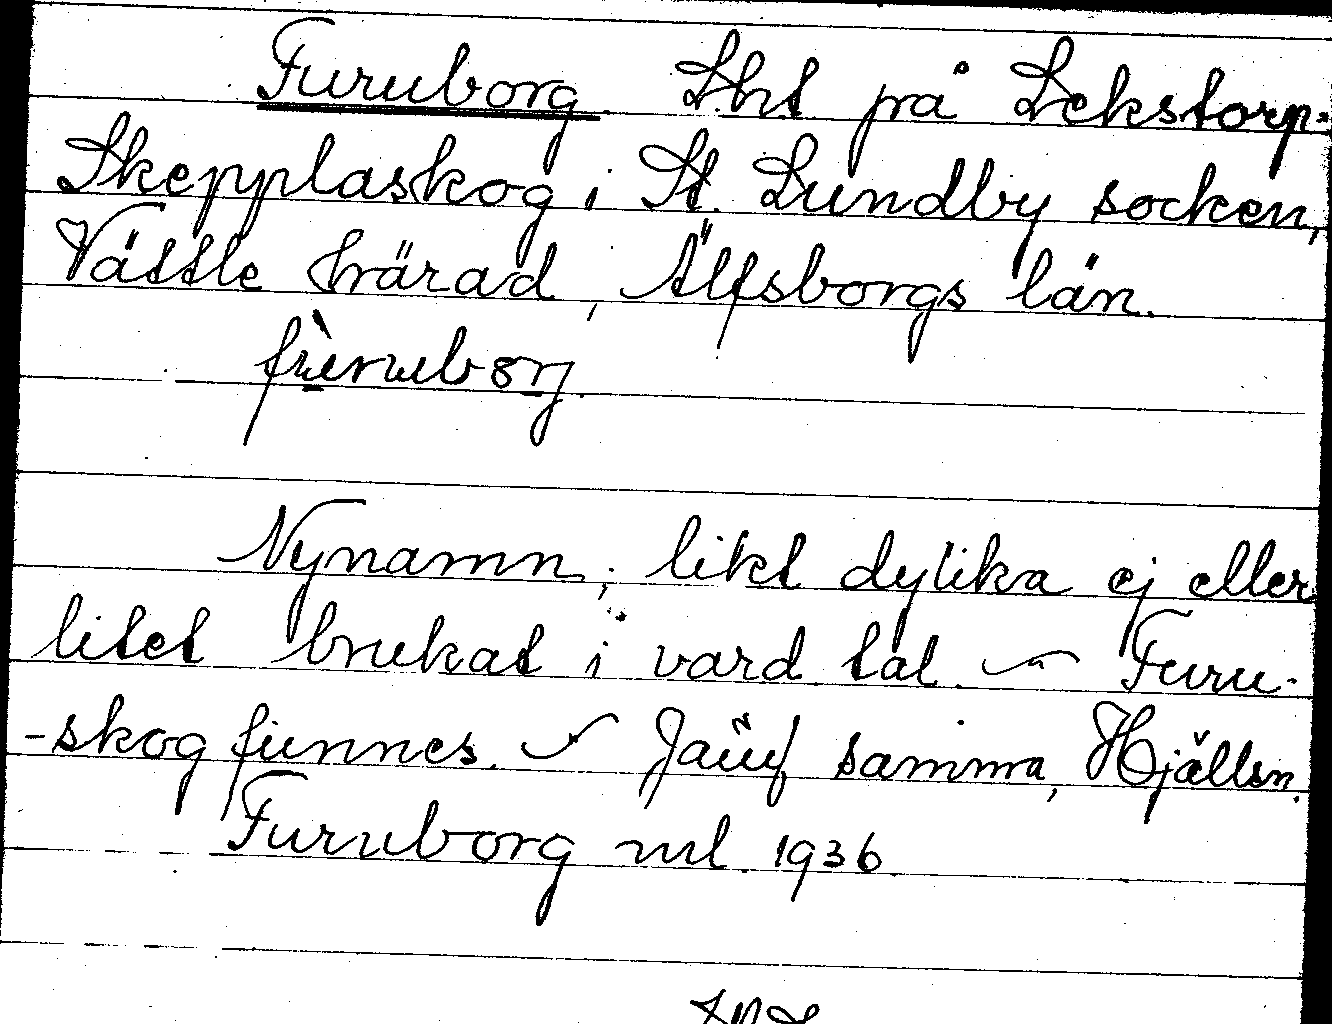 Furuborg. Lht på Lekstorp-
Skepplaskog i St. Lundby socken,
Vättle härad, Älfsborgs län.
fùruborj.
Nynamn, likt dylika ej eller
litet brukat i vard. tal. — Furu-
-skog funnes. — Jämf samma, Hjällsn.
Furuborg ml 1936